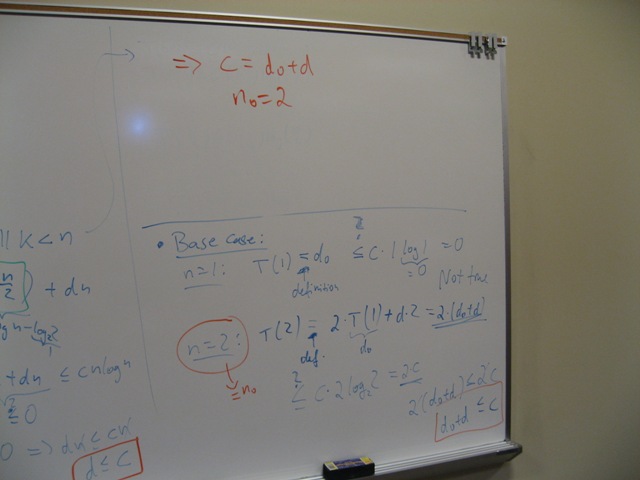 ⇒ c = d₀+d
n₀=2
ll k<n
n/2) + dn
log n - log₂2
1
+ dn ≤ cn log n
≤ 0
0 ⇒ dn ≤ cn
d ≤ c
• Base case:
n=1: T(1) = d₀ ≤ c·1 log 1 = 0
?
definition
=0
Not true
n=2: T(2) = 2·T(1) + d·2 = 2·(d₀+d)
def.
d₀
=n₀
? ≤ c·2 log₂2 = 2c
2(d₀+d) ≤ 2c
d₀+d ≤ c